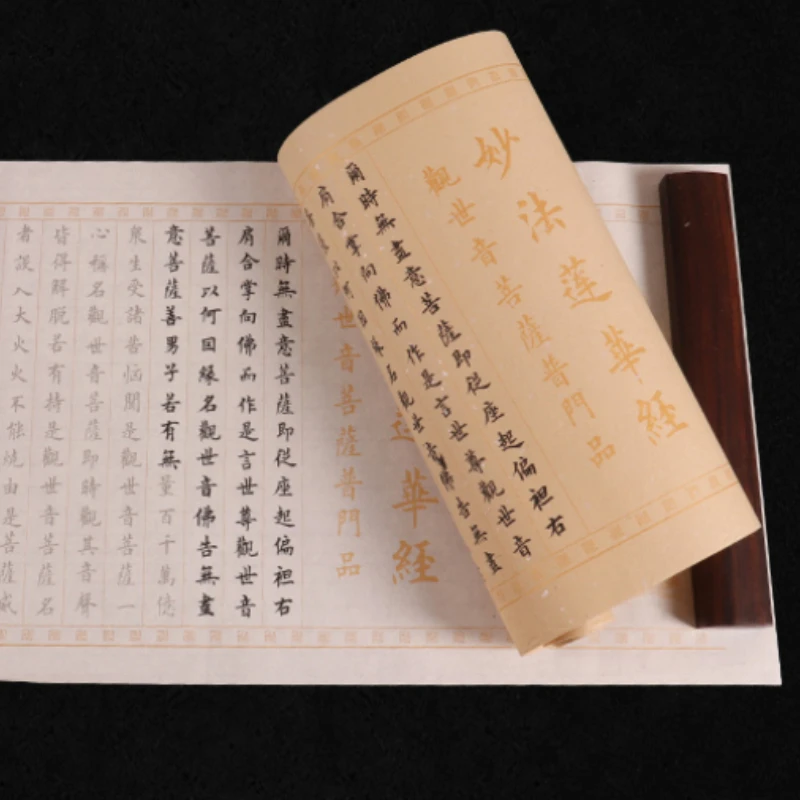 妙法蓮華經
觀世音菩薩普門品
爾時無盡意菩薩即從座起偏袒右
肩合掌向佛而作是言世尊觀世音
佛告無盡
華經
世音菩薩普門品
爾時無盡意菩薩即從座起偏袒右
肩合掌向佛而作是言世尊觀世音
菩薩以何因緣名觀世音佛告無盡
意菩薩善男子若有無量百千萬億
衆生受諸苦惱聞是觀世音菩薩一
心稱名觀世音菩薩即時觀其音聲
皆得解脫若有持是觀世音菩薩名
者設入大火火不能燒由是菩薩威